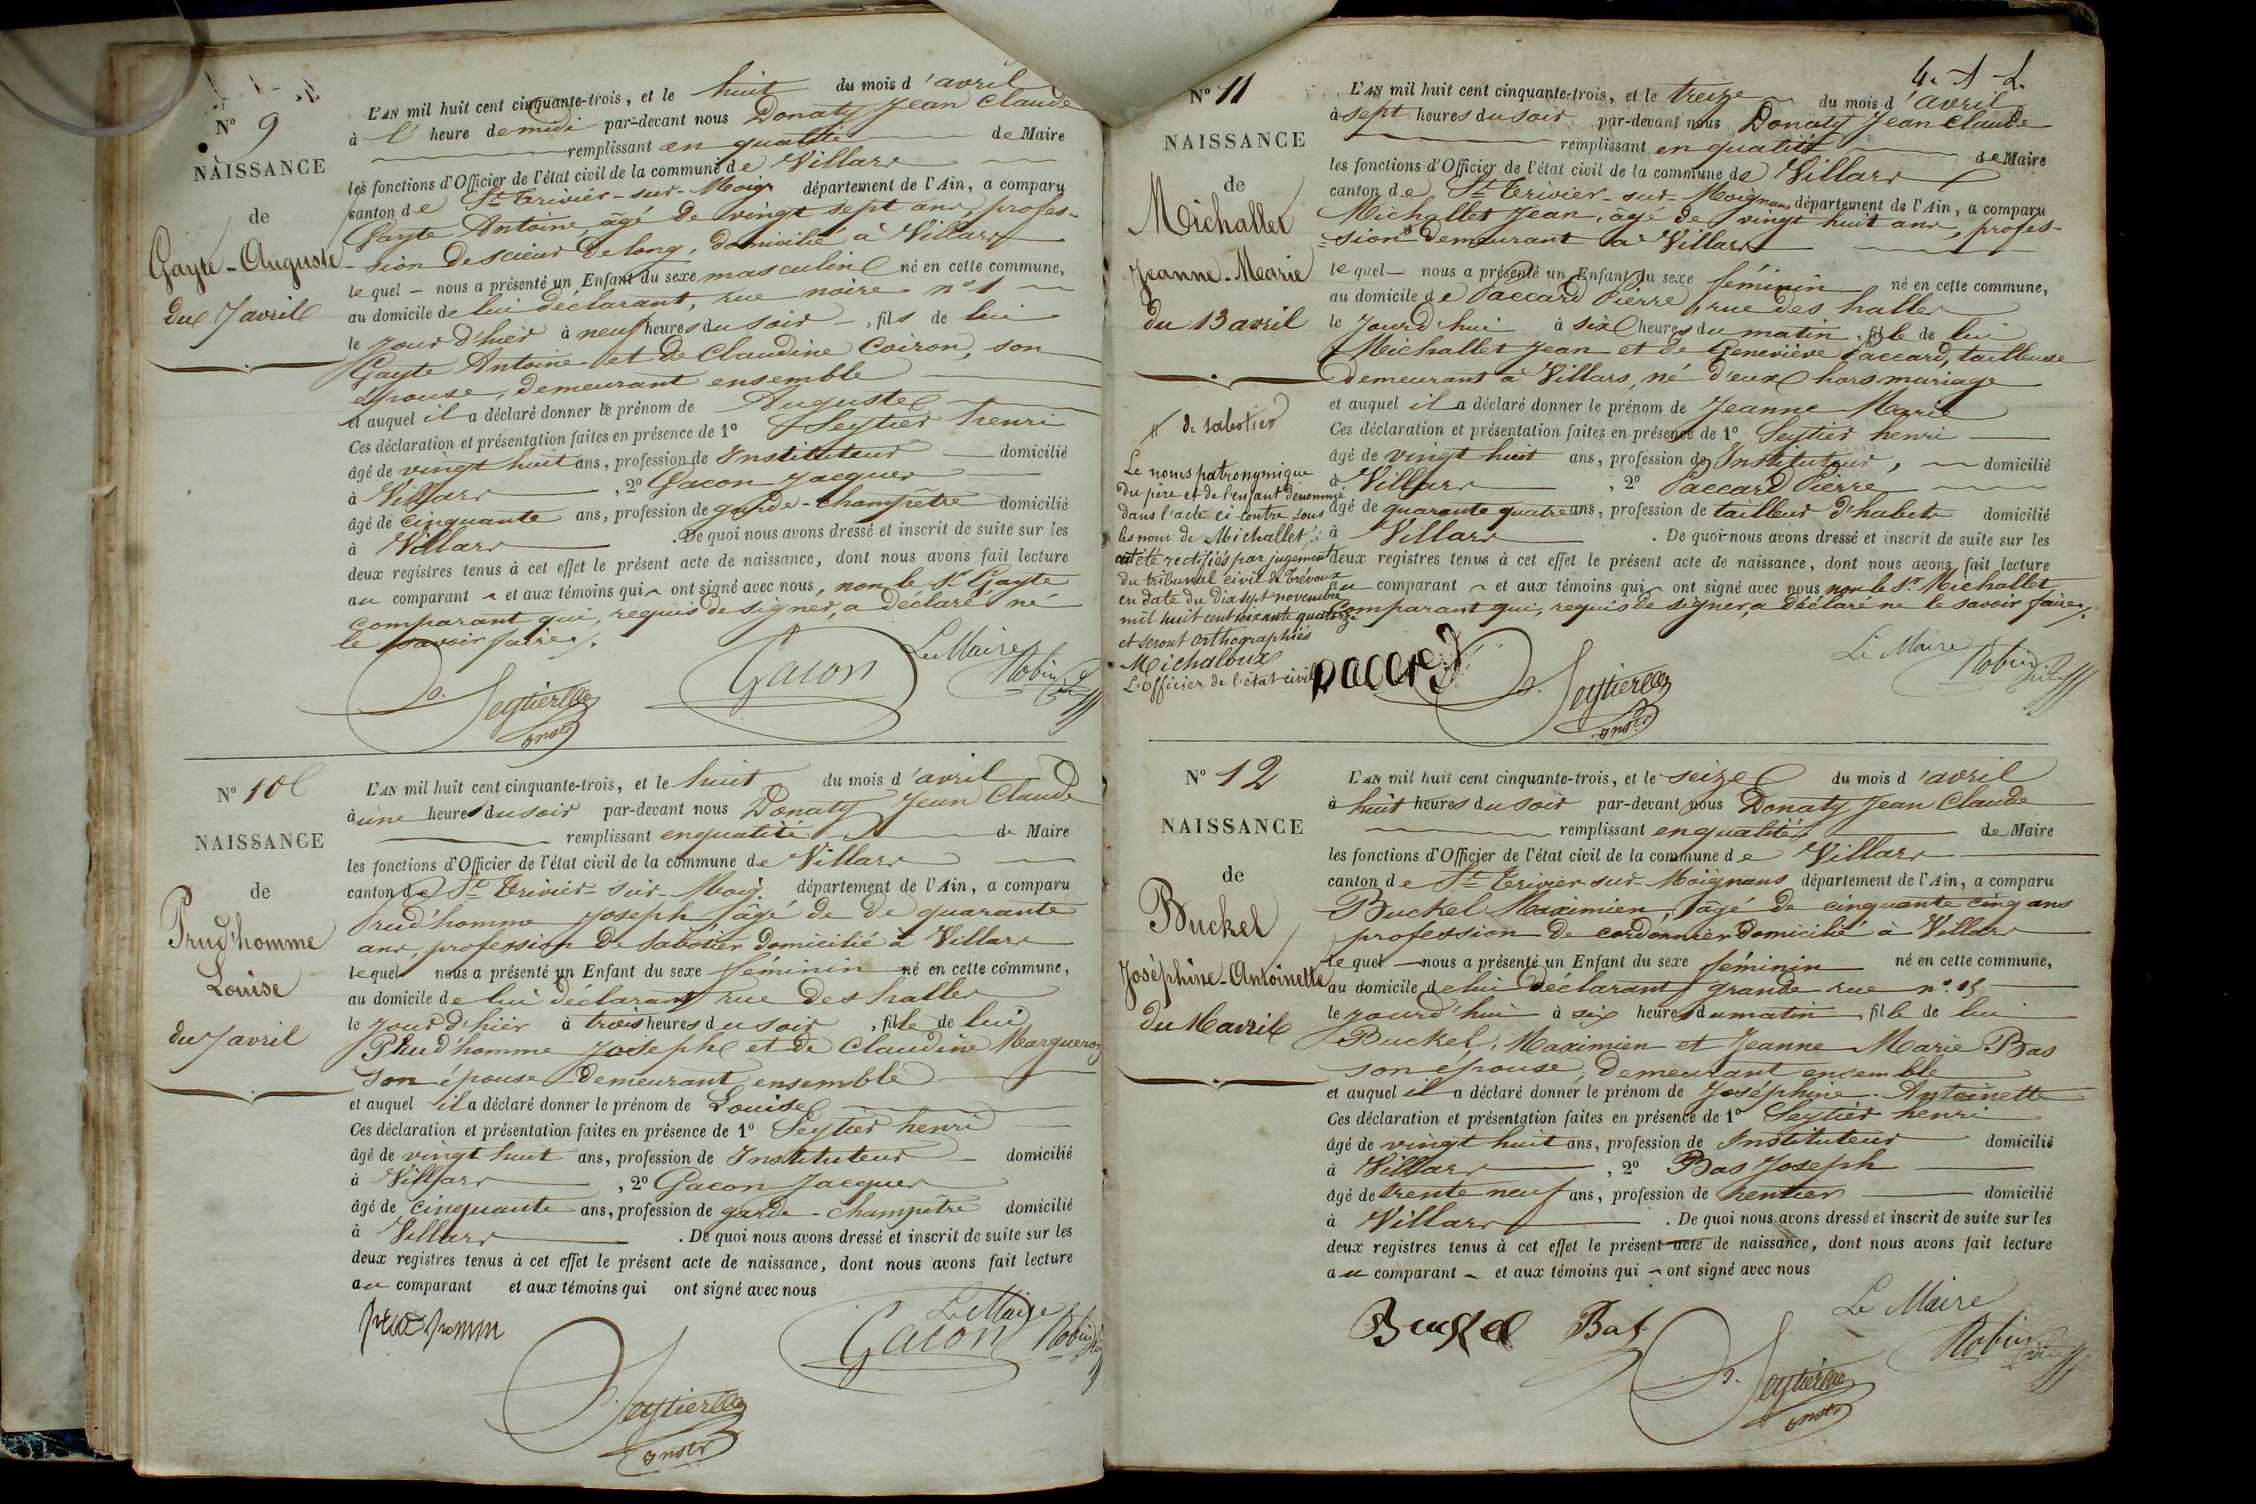 N° 9
NAISSANCE
de
Gayte-Auguste
du 7 avril
L'AN mil huit cent cinquante-trois, et le huit du mois d'avril
à l' heure de midi par-devant nous Donaty Jean Claude
remplissant en qualité de Maire
les fonctions d'Officier de l'état civil de la commune de Villars
canton de St Trivier-sur-Moig. département de l'Ain, a comparu
Gayte Antoine, âgé de vingt sept ans, profes-
sion de scieur de long, domicilié à Villars
lequel nous a présenté un Enfant du sexe masculin né en cette commune,
au domicile de lui déclarant, rue noire n° 1
le jour d'hier à neuf heures du soir, fils de lui
Gayte Antoine et de Claudine Coiron, son
épouse, demeurant ensemble
et auquel il a déclaré donner le prénom de Auguste
Ces déclaration et présentation faites en présence de 1° Seytier henri
âgé de vingt huit ans, profession de Instituteur domicilié
à Villars, 2° Gacon Jacques
âgé de cinquante ans, profession de garde-champêtre domicilié
à Villars. De quoi nous avons dressé et inscrit de suite sur les
deux registres tenus à cet effet le présent acte de naissance, dont nous avons fait lecture
au comparant et aux témoins qui ont signé avec nous, non le Sr Gayte
comparant qui, requis de signer, a déclaré né
le savoir faire.
Le Maire
Seytier
instr
Gacon
N° 10
NAISSANCE
de
Prud'homme
Louise
du 7 avril
L'AN mil huit cent cinquante-trois, et le huit du mois d'avril
à une heure du soir par-devant nous Donaty Jean Claude
remplissant en qualité de Maire
les fonctions d'Officier de l'état civil de la commune de Villars
canton de St Trivier-sur-Moig. département de l'Ain, a comparu
Prud'homme Joseph, âgé de de quarante
ans, profession de sabotier domicilié à Villars
lequel nous a présenté un Enfant du sexe féminin né en cette commune,
au domicile de lui déclarant rue des halles
le jour d'hier à trois heures du soir, fille de lui
Prud'homme Joseph et de Claudine Margueron
son épouse demeurant ensemble
et auquel il a déclaré donner le prénom de Louise
Ces déclaration et présentation faites en présence de 1° Seytier henri
âgé de vingt huit ans, profession de Instituteur domicilié
à Villars, 2° Gacon Jacques
âgé de cinquante ans, profession de garde-champêtre domicilié
à Villars. De quoi nous avons dressé et inscrit de suite sur les
deux registres tenus à cet effet le présent acte de naissance, dont nous avons fait lecture
au comparant et aux témoins qui ont signé avec nous
Le Maire
Gacon
Seytier
instr
N° 11
NAISSANCE
de
Michallet
Jeanne-Marie
du 13 avril
L'AN mil huit cent cinquante-trois, et le treize du mois d'avril
à sept heures du soir par-devant nous Donaty Jean Claude
remplissant en qualité de Maire
les fonctions d'Officier de l'état civil de la commune de Villars
canton de St Trivier-sur-Moignans département de l'Ain, a comparu
Michallet Jean, âgé de vingt huit ans, profes-
sion # demeurant à Villars
lequel nous a présenté un Enfant du sexe féminin né en cette commune,
au domicile de Paccard Pierre, rue des halles
le jourd'hui à six heures du matin, fille de lui
Michallet Jean et de Geneviève Paccard, tailleuse
demeurant à Villars, né d'eux hors mariage
et auquel il a déclaré donner le prénom de Jeanne Marie
Ces déclaration et présentation faites en présence de 1° Seytier henri
âgé de vingt huit ans, profession de Instituteur, domicilié
à Villars, 2° Paccard Pierre
âgé de quarante quatre ans, profession de tailleur d'habits domicilié
à Villars. De quoi nous avons dressé et inscrit de suite sur les
deux registres tenus à cet effet le présent acte de naissance, dont nous avons fait lecture
au comparant et aux témoins qui ont signé avec nous non le Sr Michallet
comparant qui, requis de signer, a déclaré ne le savoir faire.
# de sabotier
Le noms patronymique
du père et de l'enfant dénommé
dans l'acte ci-contre sous
les nom de Michallet,
a été rectifiés par jugement
du tribunal civil de Trévoux
en date du dix sept novembre
mil huit cent soixante quatorze
et seront orthographiés
Michaloux
L'officier de l'état civil
paccard
Seytier
instr
Le Maire
N° 12
NAISSANCE
de
Buckel
Joséphine-Antoinette
du 16 avril
L'AN mil huit cent cinquante-trois, et le seize du mois d'avril
à huit heures du soir par-devant nous Donaty Jean Claude
remplissant en qualité de Maire
les fonctions d'Officier de l'état civil de la commune de Villars
canton de St Trivier-sur-Moignans département de l'Ain, a comparu
Buckel Maximien, âgé de cinquante cinq ans
profession de cordonnier domicilié à Villars
lequel nous a présenté un Enfant du sexe féminin né en cette commune,
au domicile de lui déclarant grande rue n° 15
le jourd'hui à six heures du matin, fille de lui
Buckel, Maximien et Jeanne Marie Bas
son épouse, demeurant ensemble
et auquel il a déclaré donner le prénom de Joséphine-Antoinette
Ces déclaration et présentation faites en présence de 1° Seytier henri
âgé de vingt huit ans, profession de Instituteur domicilié
à Villars, 2° Bas Joseph
âgé de trente neuf ans, profession de rentier domicilié
à Villars. De quoi nous avons dressé et inscrit de suite sur les
deux registres tenus à cet effet le présent acte de naissance, dont nous avons fait lecture
au comparant et aux témoins qui ont signé avec nous
Le Maire
Buckel
Bas
Seytier
instr